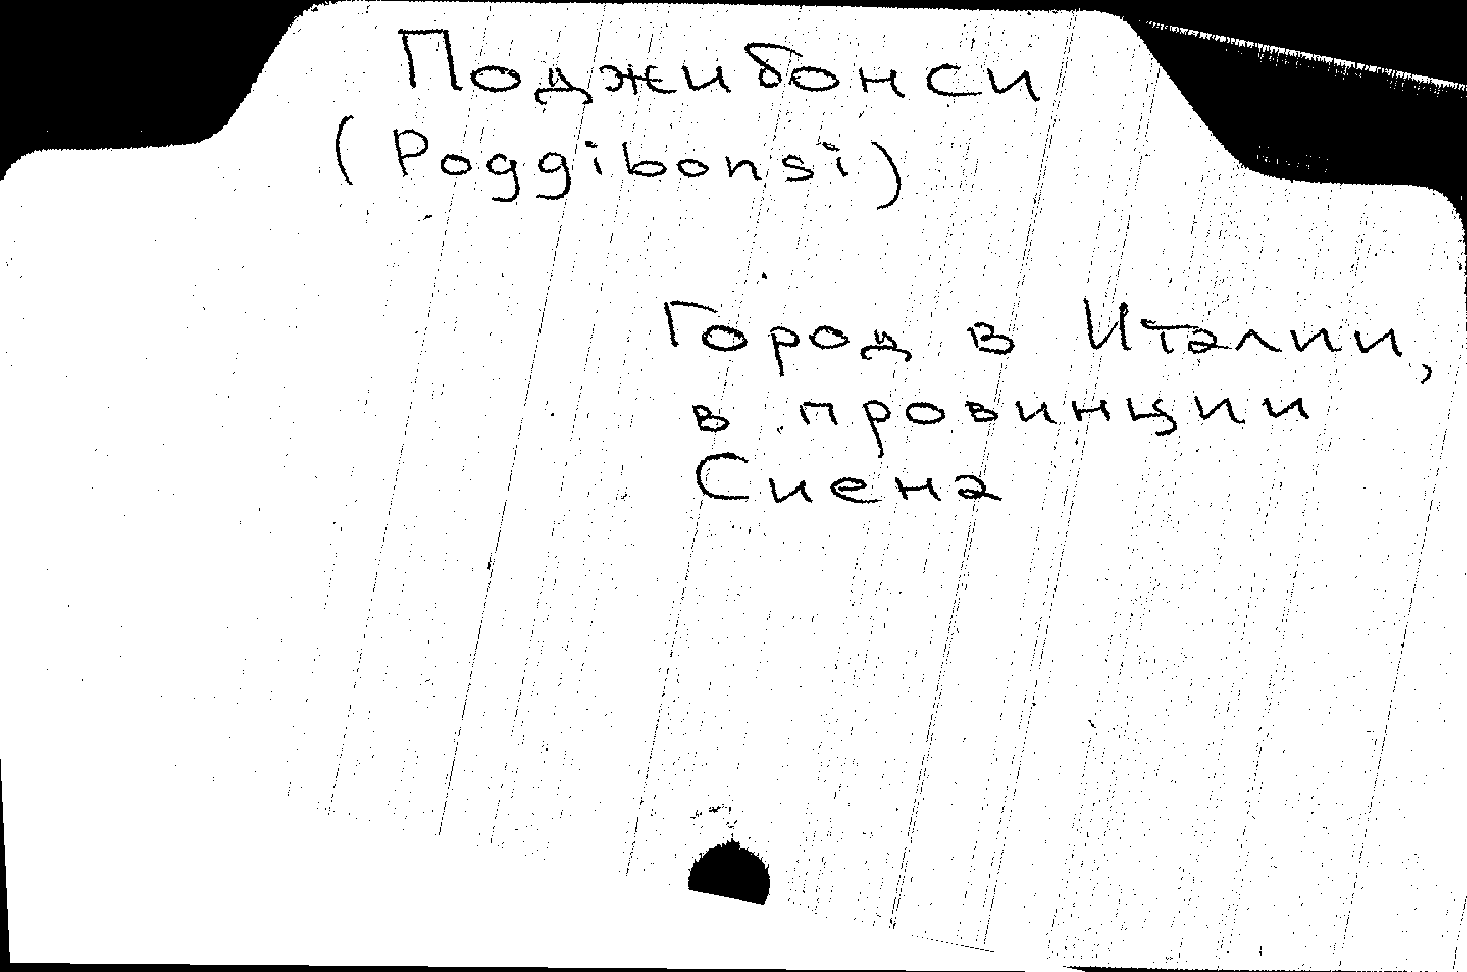 Поджибонси
(Poggibonsi)
Город в Италии,
в провинции
Сиена